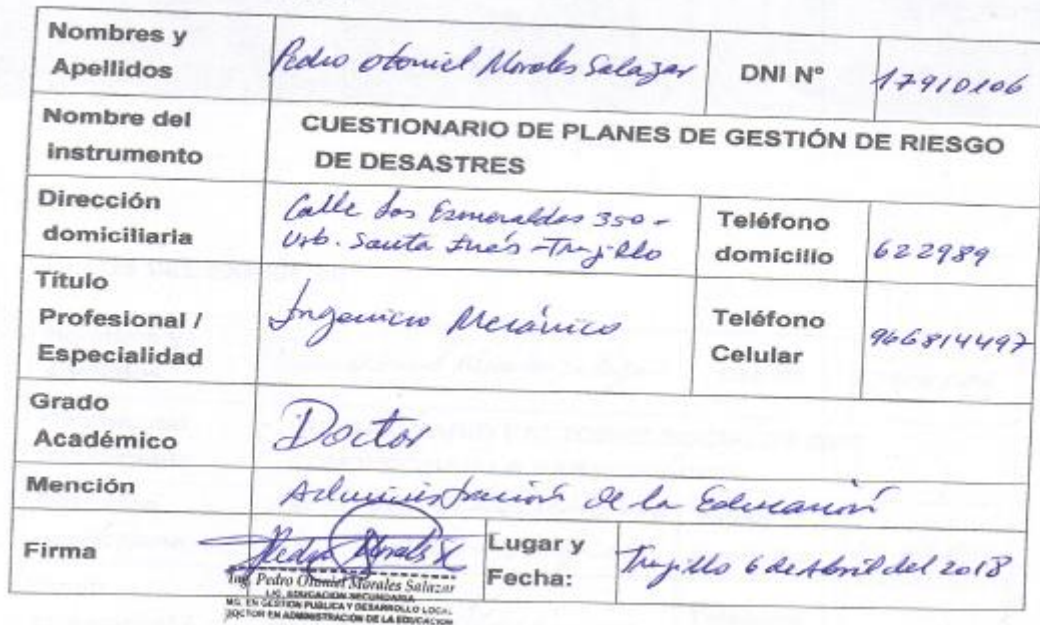 Nombres y
Apellidos
Pedro Otoniel Morales Salazar
DNI Nº
17910106
Nombre del
instrumento
CUESTIONARIO DE PLANES DE GESTIÓN DE RIESGO
DE DESASTRES
Dirección
domiciliaria
Calle Las Esmeraldas 350 -
Urb. Santa Inés - Trujillo
Teléfono
domicilio
622989
Título
Profesional /
Especialidad
Ingeniero Mecánico
Teléfono
Celular
966814497
Grado
Académico
Doctor
Mención
Administración de la Educación
Firma
Pedro Morales
Ing. Pedro Otoniel Morales Salazar
LIC. EDUCACIÓN SECUNDARIA
MG. EN GESTIÓN PUBLICA Y DESARROLLO LOCAL
DOCTOR EN ADMINISTRACIÓN DE LA EDUCACIÓN
Lugar y
Fecha:
Trujillo 6 de Abril del 2018